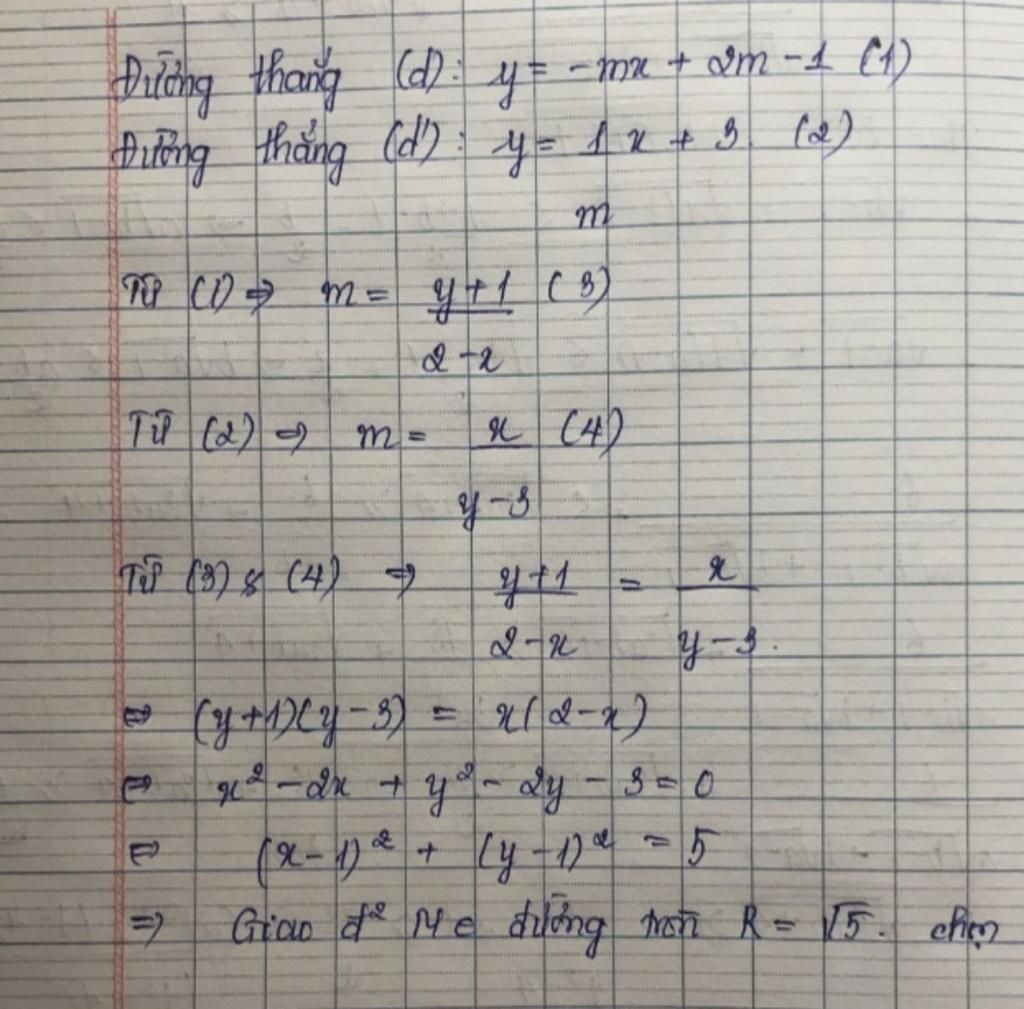 Đường thẳng (d): y = -mx + 2m - 1 (1)
Đường thẳng (d'): y = 1 x + 3 (2)
m
Từ (1) ⇒ m = y+1 (3)
2-x
Từ (2) ⇒ m = x (4)
y-3
Từ (3) & (4) ⇒ y+1 = x
2-x y-3.
⇔ (y+1)(y-3) = x(2-x)
⇔ x² - 2x + y² - 2y - 3 = 0
⇔ (x-1)² + (y-1)² = 5
⇒ Giao đ² M ∈ đường tròn R = √5. chọn